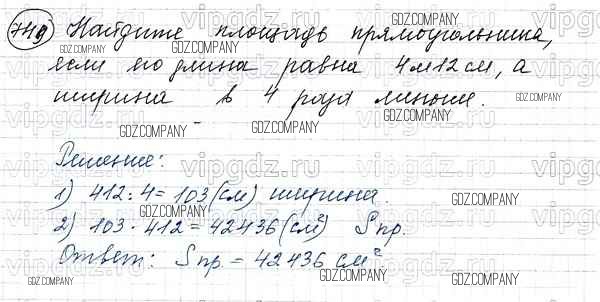 749 Найдите площадь прямоугольника,
если его длина равна 4м12см, а
ширина в 4 раза меньше.
Решение:
1) 412:4=103(см) ширина.
2) 103·412=42436(см²) Sпр.
Ответ: Sпр.=42436 см²
vipgdz.ru
GDZ.COMPANY